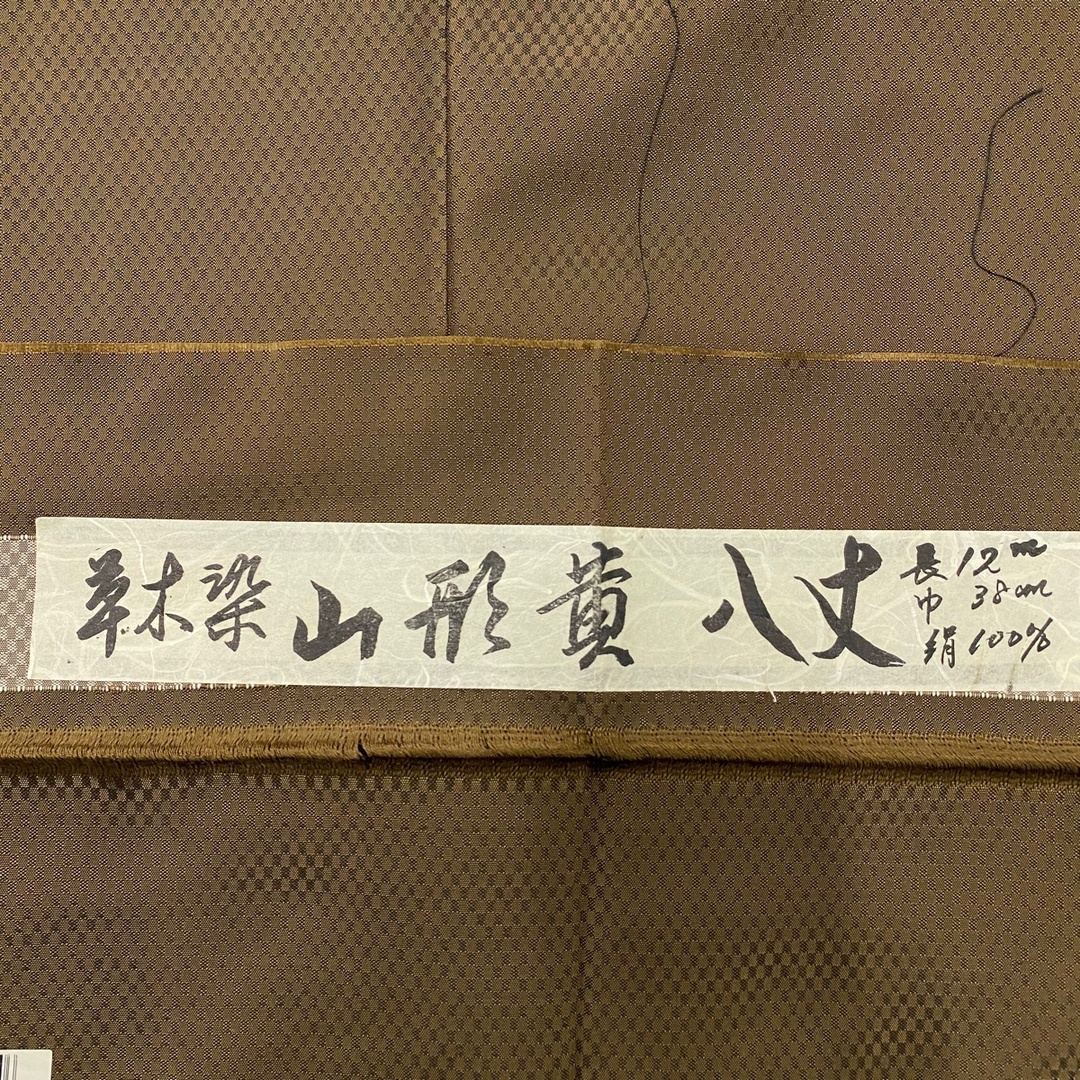 草木染 山形黄 八丈
長 12m
巾 38cm
絹 100%